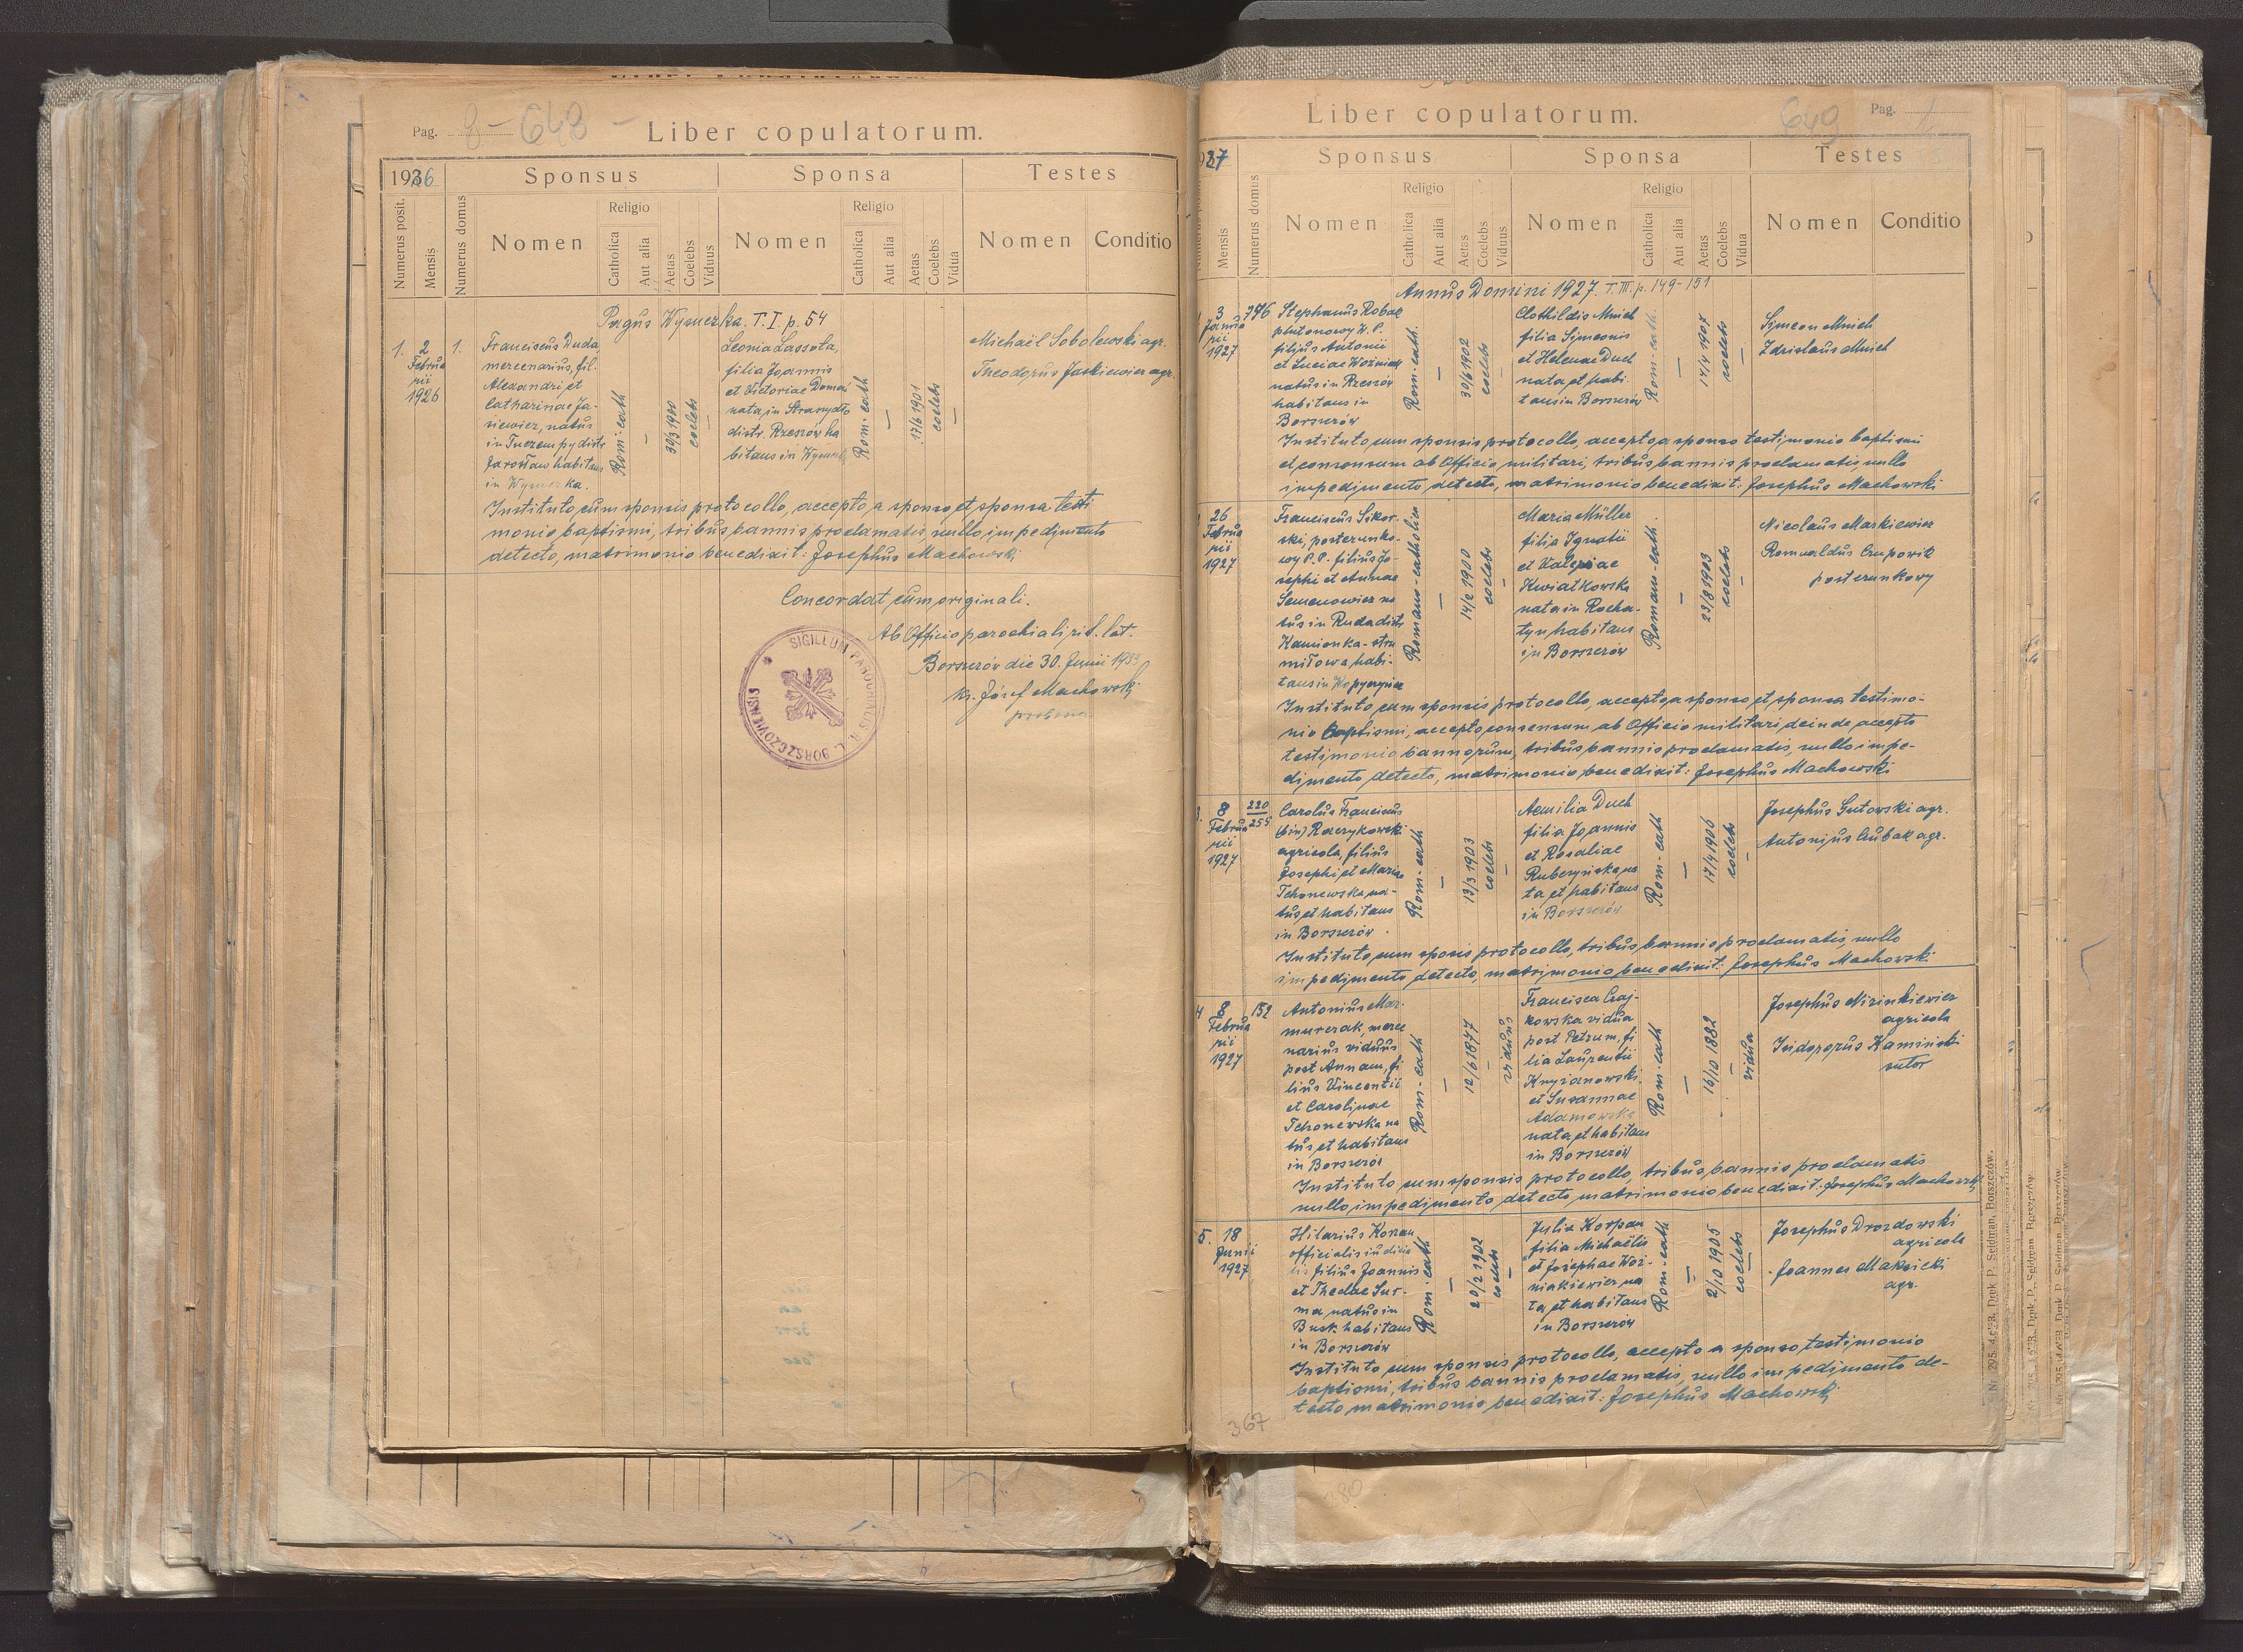 Pag. 8 - 648 -
Liber copulatorum.
1926
Sponsus
Sponsa
Testes
Numerus posit.
Mensis
Numerus domus
Nomen
Religio
Catholica
Aut alia
Aetas
Coelebs
Viduus
Nomen
Religio
Catholica
Aut alia
Aetas
Coelebs
Vidua
Nomen
Conditio
Pagus Wymerzka. T. I. p. 54
1.
2
Februa
rii
1926
1.
Franciscus Duda
mercenarius, fil.
Alexandri et
Catharinae Ja-
siewicz, natus
in Tuczempy distr
Jarosław habitans
in
Rom: cath
—
30/3 1900
coelebs
—
Leonia Lassota,
filia Joannis
et Victoriae Domań
nata in Straszydło
distr. Rzeszów ha
bitans in
Rom: cath
—
17/6 1901
coelebs
—
Michaël Sobolewski agr.
Theodorus Jaskiewicz agr.
Instituto cum sponsis protocollo, accepto a sponso et sponsa testi
monio baptismi, tribus bannis proclamatis, nullo impedimento
detecto, matrimonio benedixit: Josephus Machowski
Concordat cum originali.
Ab Officio parochiali rit. lat.
Borszczów die 30. Junii 1933
Ks. Józef Machowski
SIGILLUM PAROCHIALIS R. L. BORSZCZOVIENSIS
Liber copulatorum.
649
Pag. 1
927
Sponsus
Sponsa
Testes
Mensis
Numerus domus
Nomen
Religio
Catholica
Aut alia
Aetas
Coelebs
Viduus
Nomen
Religio
Catholica
Aut alia
Aetas
Coelebs
Vidua
Nomen
Conditio
Annus Domini 1927. T. III. p. 149-151
3
Janua
rii
1927
776
Stephanus Robak
plutonowy W. P.
filius Antonii
et Luciae Woźniak
natus in Rzeszów
habitans in
Borszczów
Rom-cath.
—
30/6 1902
coelebs
—
Clothildis Mnich
filia Simeonis
et Helenae Duch
nata et habi-
tans in Borszczów
Rom-cath.
—
14/4 1907
coelebs
—
Symeon Mnich
Zdzislaus Mnich
Instituto cum sponsis protocollo, accepto a sponso testimonio baptismi
et consensum ab Officio militari, tribus bannis proclamatis, nullo
impedimento detecto, matrimonio benedixit: Josephus Machowski
26
Februa
rii
1927
Franciscus Sikor-
ski, posterunko-
wy P. P. filius Jo-
sephi et Annae
Semenowicz na
tus in Ruda distr
Kamionka-stru
miłowa habi-
tans in Kopyczyńce
Romano-catholica
—
14/2 1900
coelebs
—
Maria Müller
filia Ignatii
et Valeriae
Kwiatkowska
nata in Roha-
tyn habitans
in Borszczów
Romano-cath.
—
23/8 1903
coelebs
—
Nicolaus Markiewicz
Romualdus Czupowik
posterunkowy
Instituto cum sponsis protocollo, accepto a sponso et sponsa testimo-
nio Baptismi, accepto consensum ab Officio militari deinde accepto
testimonio bannorum, tribus bannis proclamatis, nullo impe-
dimento detecto, matrimonio benedixit: Josephus Machowski
3.
8
Februa
rii
1927
220
255
Carolus Franciscus
(bin) Raczykowski
agricola, filius
Josephi et Mariae
Tchonewska na-
tus et habitans
in Borszczów.
Rom-cath
—
13/3 1903
coelebs
—
Aemilia Duch
filia Joannis
et Rosaliae
Rubczyńska na
ta et habitans
in Borszczów
Rom-cath
—
17/4 1906
coelebs
—
Josephus Gutowski agr.
Antonius Czubak agr.
Instituto cum sponsis protocollo, tribus bannis proclamatis, nullo
impedimento detecto, matrimonio benedixit: Josephus Machowski
4
8
Februa
rii
1927
152
Antonius Mar-
murczak merce
narius viduus
post Annam, fi
lius Vincentii
et Carolinae
Tchonewska na
tus et habitans
in Borszczów
Rom-cath
—
12/6 1877
—
viduus
Francisca Czaj-
kowska vidua
post Petrum, fi
lia Laurentii
Knyżanowski
et Susannae
Adamowska
nata et habitans
in Borszczów
Rom-cath
—
16/10 1882
—
vidua
Josephus Nizinkiewicz
agricola
Isidorus Kaminski
sutor
Instituto cum sponsis protocollo, tribus bannis proclamatis
nullo impedimento detecto matrimonio benedixit: Josephus Machowski
5.
18
Junii
1927
Hilarius Kossau
officialis iudicia
lis filius Joannis
et Theclae Sur-
ma natus in
Busk habitans
in Borszczów
Rom: cath
—
20/2 1902
coelebs
—
Julia Korpan
filia Michaëlis
et Josephae Woź-
niakiewicz na
ta et habitans
in Borszczów
Rom-cath
—
2/10 1905
coelebs
—
Josephus Drozdowski
agricola
Joannes Maksicki
agr.
Instituto cum sponsis protocollo, accepto a sponso testimonio
baptismi, tribus bannis proclamatis, nullo impedimento de-
tecto matrimonio benedixit: Josephus Machowski
367
Druk. P. Seidman, Borszczów.
280